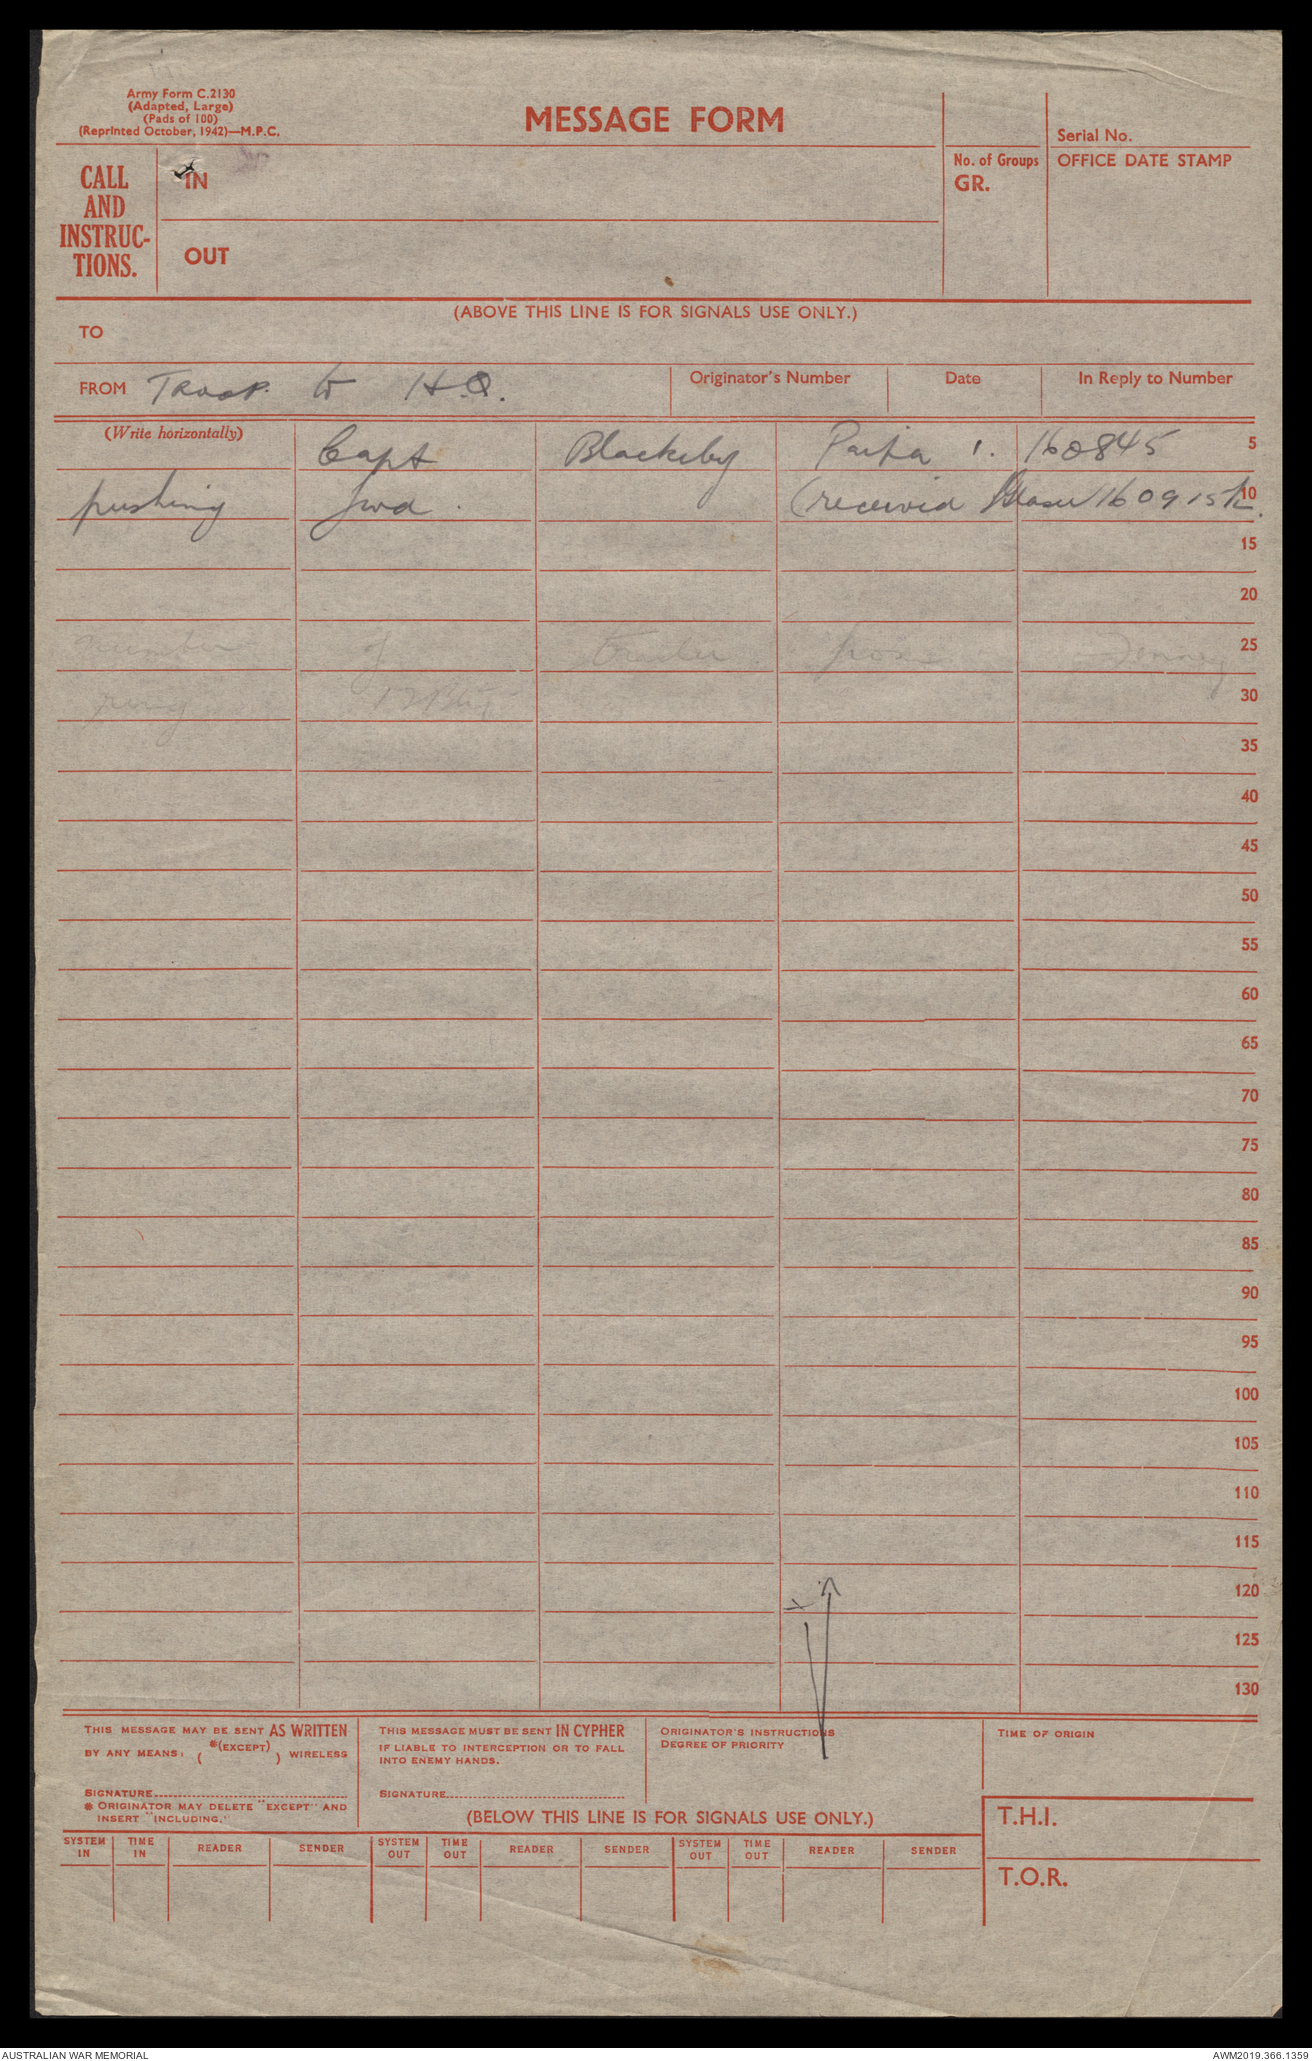 Army Form C.2130
(Adapted, Large)
(Pads of 100)
(Reprinted October, 1942)—M.P.C.
MESSAGE FORM
Serial No.
CALL
AND
INSTRUC-
TIONS.
IN
OUT
No. of Groups
GR.
OFFICE DATE STAMP
(ABOVE THIS LINE IS FOR SIGNALS USE ONLY.)
TO
FROM Troop to H.Q.
Originator's Number
Date
In Reply to Number
(Write horizontally)
Capt Blackeby 1. 160845 5
pushing fwd. (received 160915K. 10
15
20
number of trailer from 25
30
35
40
45
50
55
60
65
70
75
80
85
90
95
100
105
110
115
120
125
130
THIS MESSAGE MAY BE SENT AS WRITTEN
BY ANY MEANS: ( *(EXCEPT) ) WIRELESS
SIGNATURE
* ORIGINATOR MAY DELETE "EXCEPT" AND
INSERT "INCLUDING."
THIS MESSAGE MUST BE SENT IN CYPHER
IF LIABLE TO INTERCEPTION OR TO FALL
INTO ENEMY HANDS.
SIGNATURE
ORIGINATOR'S INSTRUCTIONS
DEGREE OF PRIORITY
TIME OF ORIGIN
(BELOW THIS LINE IS FOR SIGNALS USE ONLY.)
T.H.I.
SYSTEM IN TIME IN READER SENDER SYSTEM OUT TIME OUT READER SENDER SYSTEM OUT TIME OUT READER SENDER
T.O.R.
AUSTRALIAN WAR MEMORIAL
AWM2019.366.1359